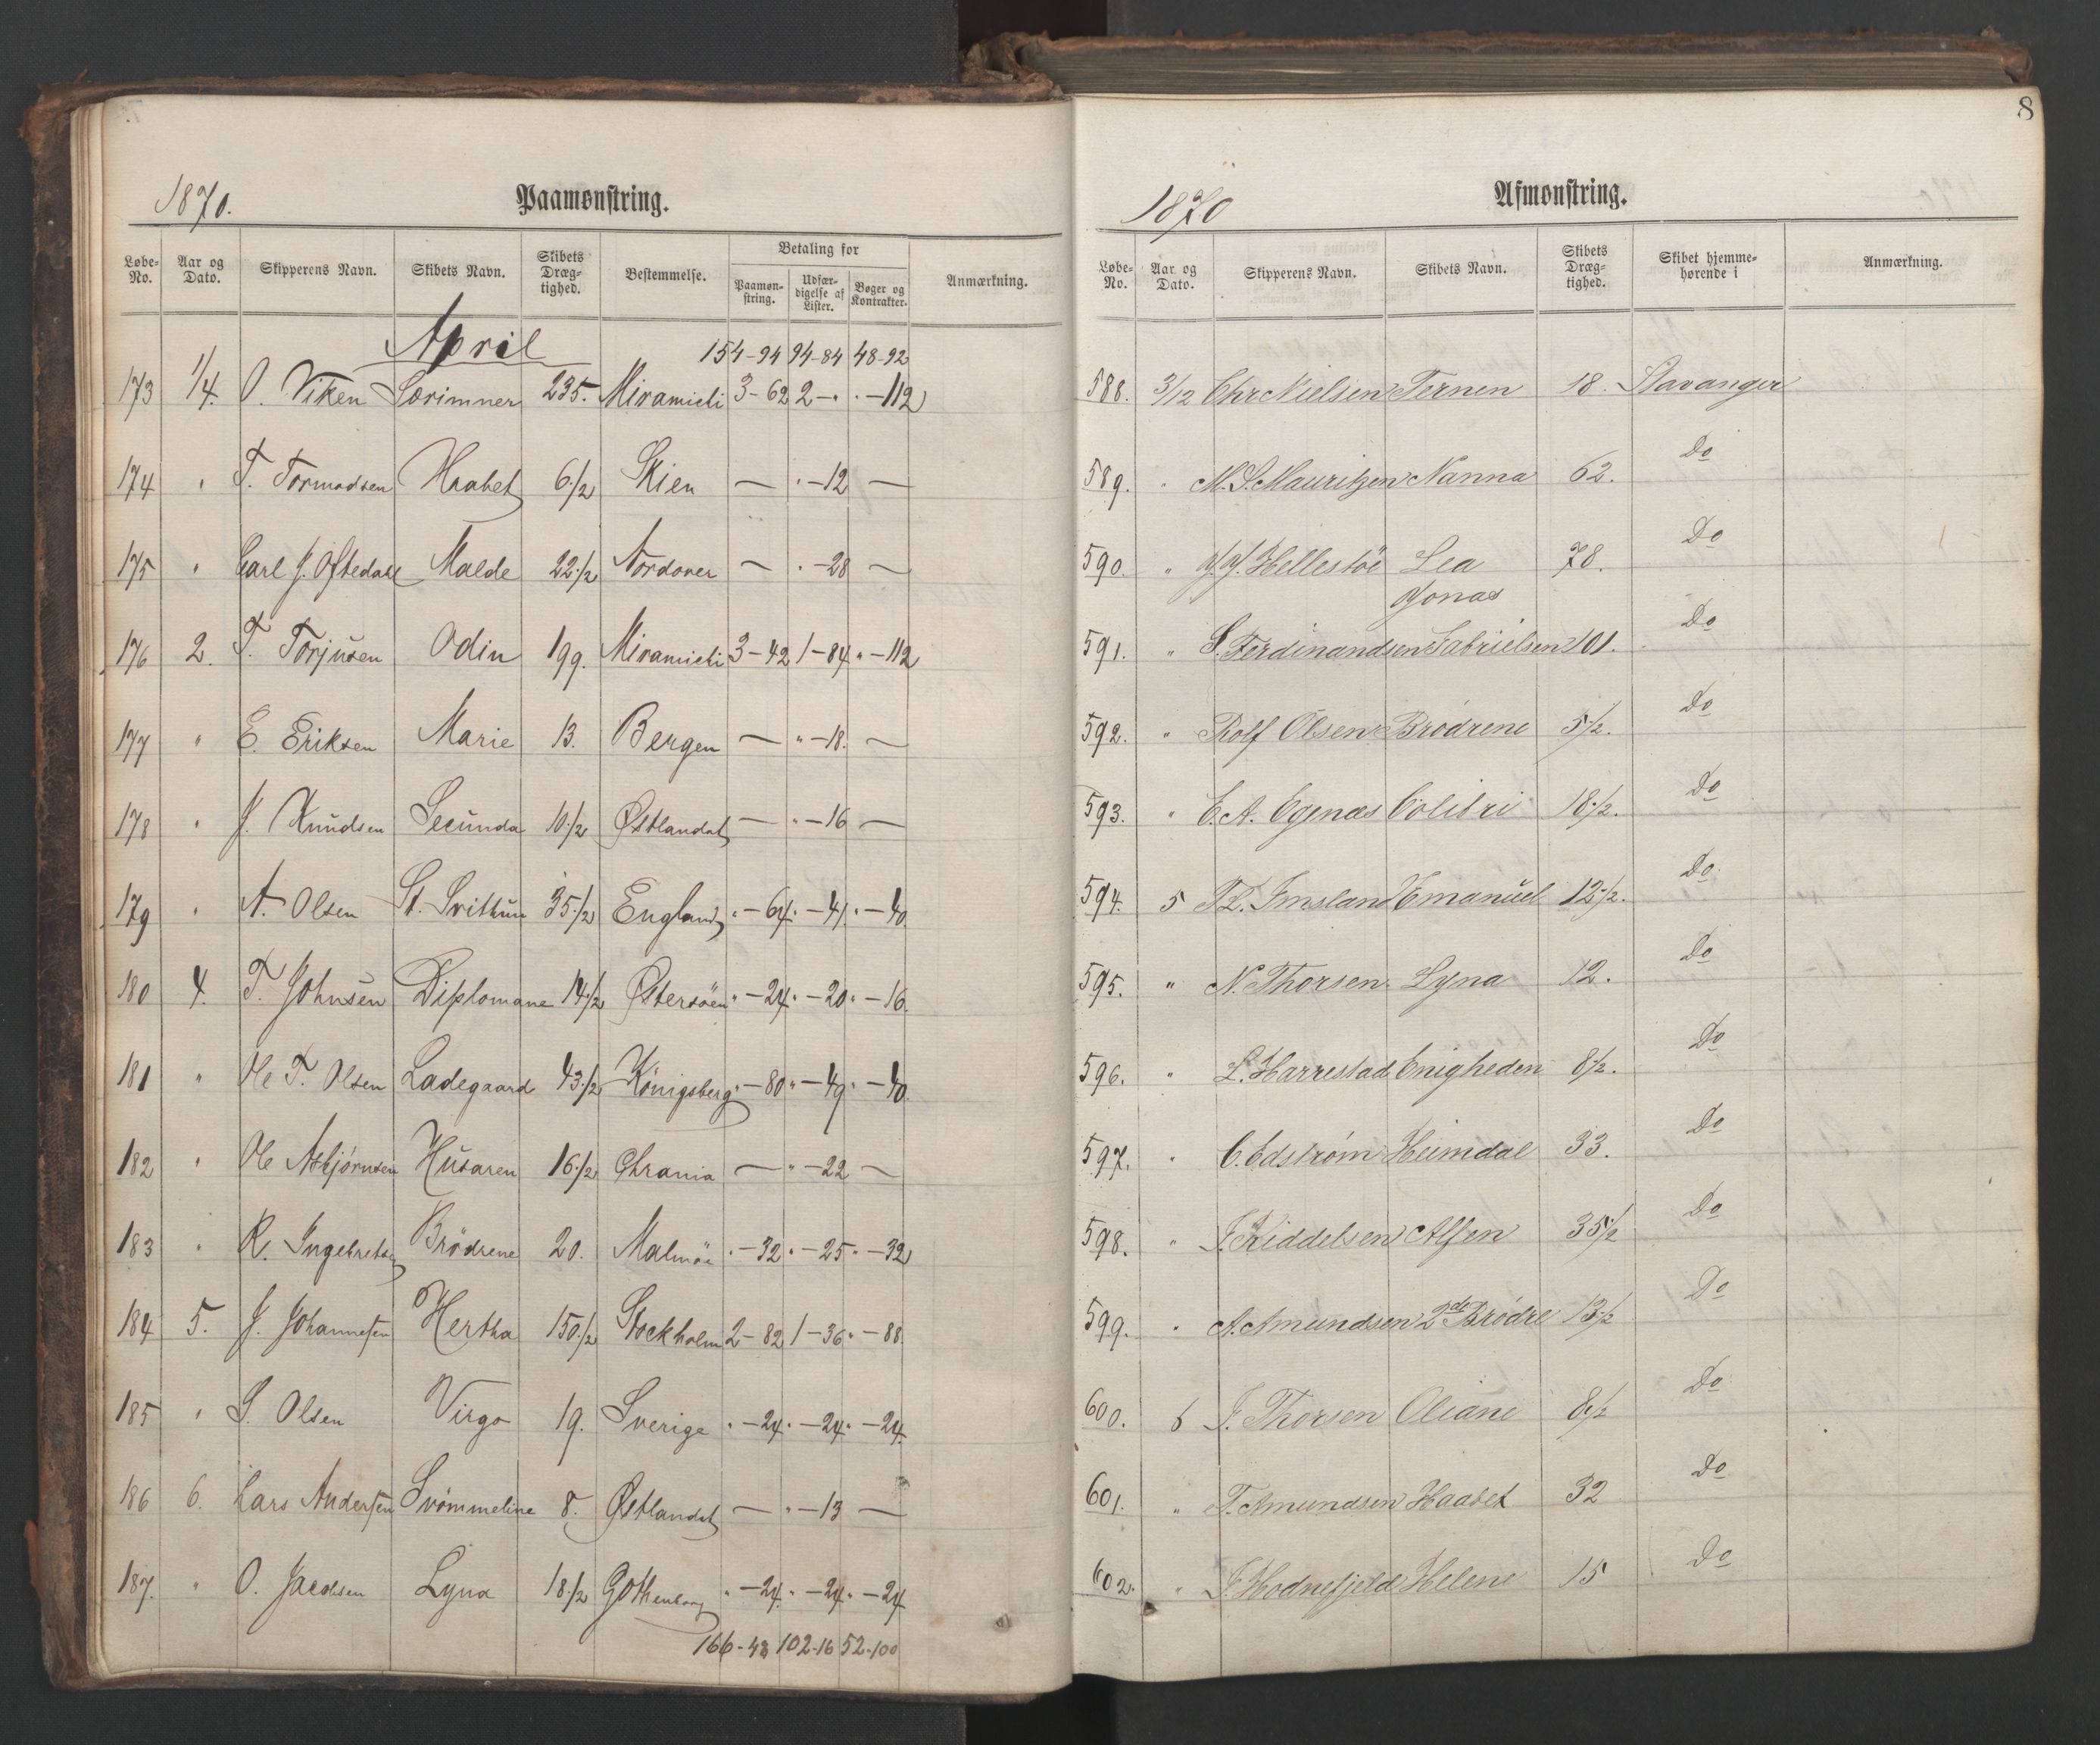 1870.
Paamønstring.
Løbe-No. Aar og Dato. Skipperens Navn. Skibets Navn. Skibets Dræg-tighed. Bestemmelse. Betaling for Paamøn-string. Udfær-digelse af Lister. Bøger og Kontrakter. Anmærkning.
April 154-94 94-84 48-92
173 1/4. O. Viken Særimner 235. Miramichi 3-62 2-" "-112
174 " T. Tormodsen Haabet 6 1/2 Skien — "-12 —
175 " Carl J. Oftedahl Malde 22 1/2 Nordover — "-28 —
176 2. T. Torjusen Odin 199. Miramichi 3-42 1-84 "-112
177 " E. Eriksen Marie 13. Bergen — "-18. —
178 " J. Knudsen Secunda 10 1/2 Østlandet — "-16 —
179 " A. Olsen St. Svithun 35 1/2 England "-64 "-41 "-40
180 4. T. Johnsen Diplomane 14 1/2 Østersöen "-24 "-20 "-16
181 " Ole T. Olsen Ladegaard 43 1/2 Königsberg "-80 "-49 "-40
182 " Ole Asbjørnsen Husaren 16 1/2 Chrania — "-22 —
183 " R. Ingebretsen Brödrene 20. Malmöe "-32 "-25 "-32
184 5. J. Johannesen Hertha 150 1/2 Stockholm 2-82 1-36 "-88
185 " S. Olsen Virgo 19. Sverige "-24 "-24 "-24
186 6. Lars Andersen Svömmeline 8. Østlandet — "-13 —
187. " O. Jacobsen Lyna 18 1/2 Gothenborg "-24 "-24 "-24
166-48 102-16 52-100
8
1870
Afmønstring.
Løbe-No. Aar og Dato. Skipperens Navn. Skibets Navn. Skibets Dræg-tighed. Skibet hjemme-hørende i Anmærkning.
588. 3/12 Chr Nielsen Ternen 18. Stavanger
589. " M. S. Mauritzen Nanna 62. Do
590. " J. J. Hellestöe Lea 78. Do
591. " S. Ferdinandsen Jonas Gabrielsen 101. Do
592. " Rolf Olsen Brödrene 5 1/2. Do
593. " E. A. Egenæs Colibri 18 1/2. Do
594. 5 T. L. Imsland Emanuel 12 1/2. Do
595. " N. Thorsen Lyna 12. Do
596. " L. Harrestad Enigheden 8 1/2. Do
597. " C. Edstrøm Heimdal 33. Do
598. " J. Kiddelsen Alfen 35 1/2 Do
599. " A. Amundsen 2de Brödre 13 1/2 Do
600. 6 J. Thorsen Oliane 8 1/2 Do
601. " T. Amundsen Haabet 32 Do
602. " J. Hodnefjeld Helene 15 Do